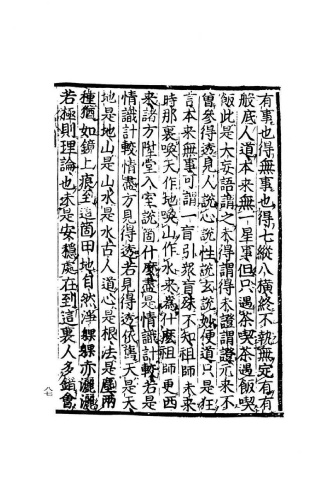 有事也得無事也得七縱八橫終不執無定有有一
般底人道本來無一星事但只遇茶喫茶遇飯喫
飯此是大妄語謂之未得謂得未證謂證元來不
曾參得透見人說心說性說玄說妙便道只是狂
言本來無事可謂一盲引衆盲殊不知祖師未來
時那裏喚天作地喚山作水來爲什麼祖師更西
來諸方陞堂入室說箇什麼盡是情識計較若是
情識計較情盡方見得透若見得透依舊天是天
地是地山是山水是水古人道心是根法是塵兩
種猶如鏡上痕到這箇田地自然淨躶躶赤灑灑
若極則理論也未是安穩處在到這裏人多錯會
八七